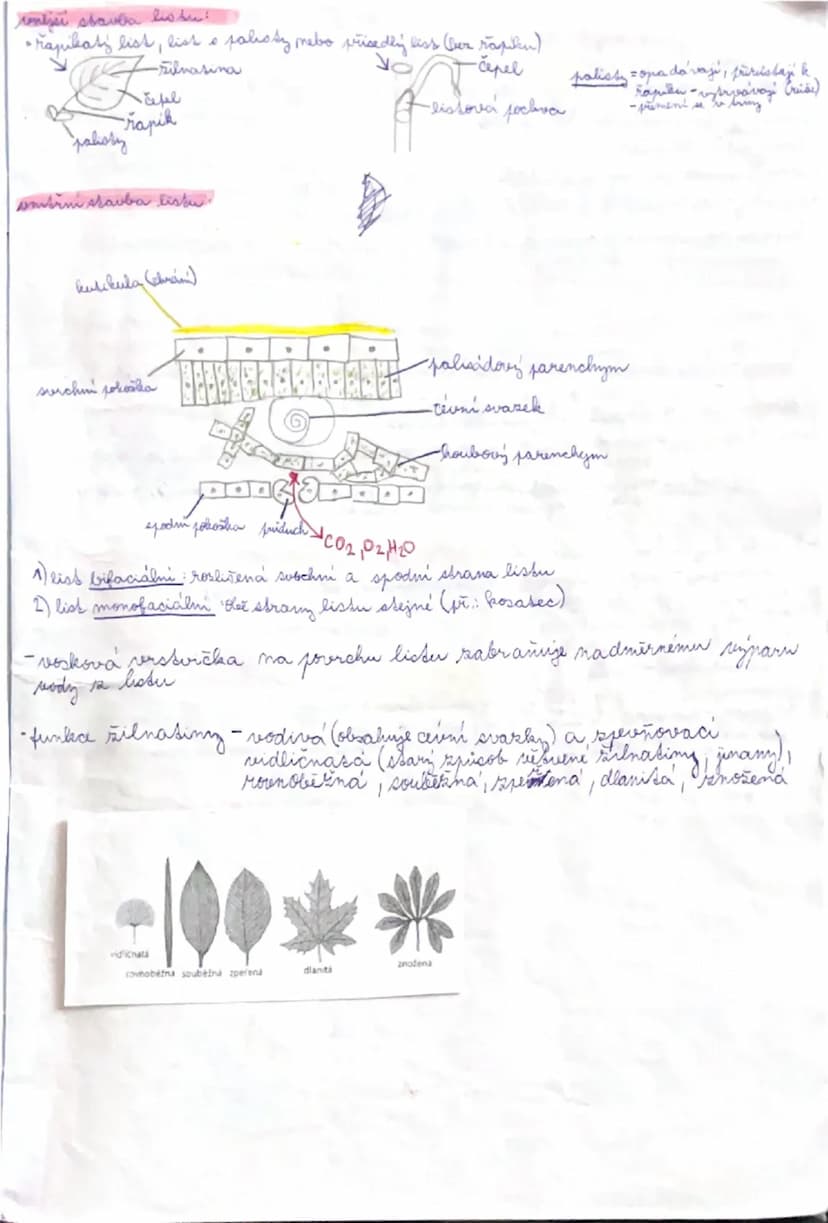 vnější stavba listu:
• řapíkatý list, list s palisty nebo přisedlý list (bez řapíku)
žilnatina
čepel
řapík
palisty
čepel
listová pochva
palisty = opadávají, přirůstají k
řapíku - vytrvávají (růže)
- přemění se v trny
vnitřní stavba listu:
kutikula (chrání)
svrchní pokožka
palisádový parenchym
cévní svazek
houbový parenchym
spodní pokožka
průduch
CO2, O2, H2O
1) list bifaciální: rozlišená svrchní a spodní strana listu
2) list monofaciální: obě strany listu stejné (př.: kosatec)
- vosková vrstvička na povrchu listu zabraňuje nadměrnému výparu
vody z listu
• funkce žilnatiny - vodivá (obsahuje cévní svazky) a zpevňovací
vidličnatá (starý způsob větvené žilnatiny, jinany),
rovnoběžná, souběžná, zpeřená, dlanitá, znožená
vidličnatá
rovnoběžná souběžná zpeřená
dlanitá
znožená